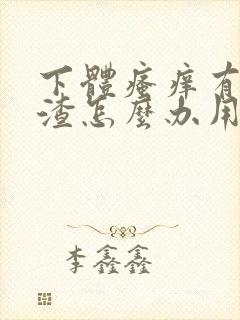 下體瘙痒有
渣怎麼办用
李鑫鑫